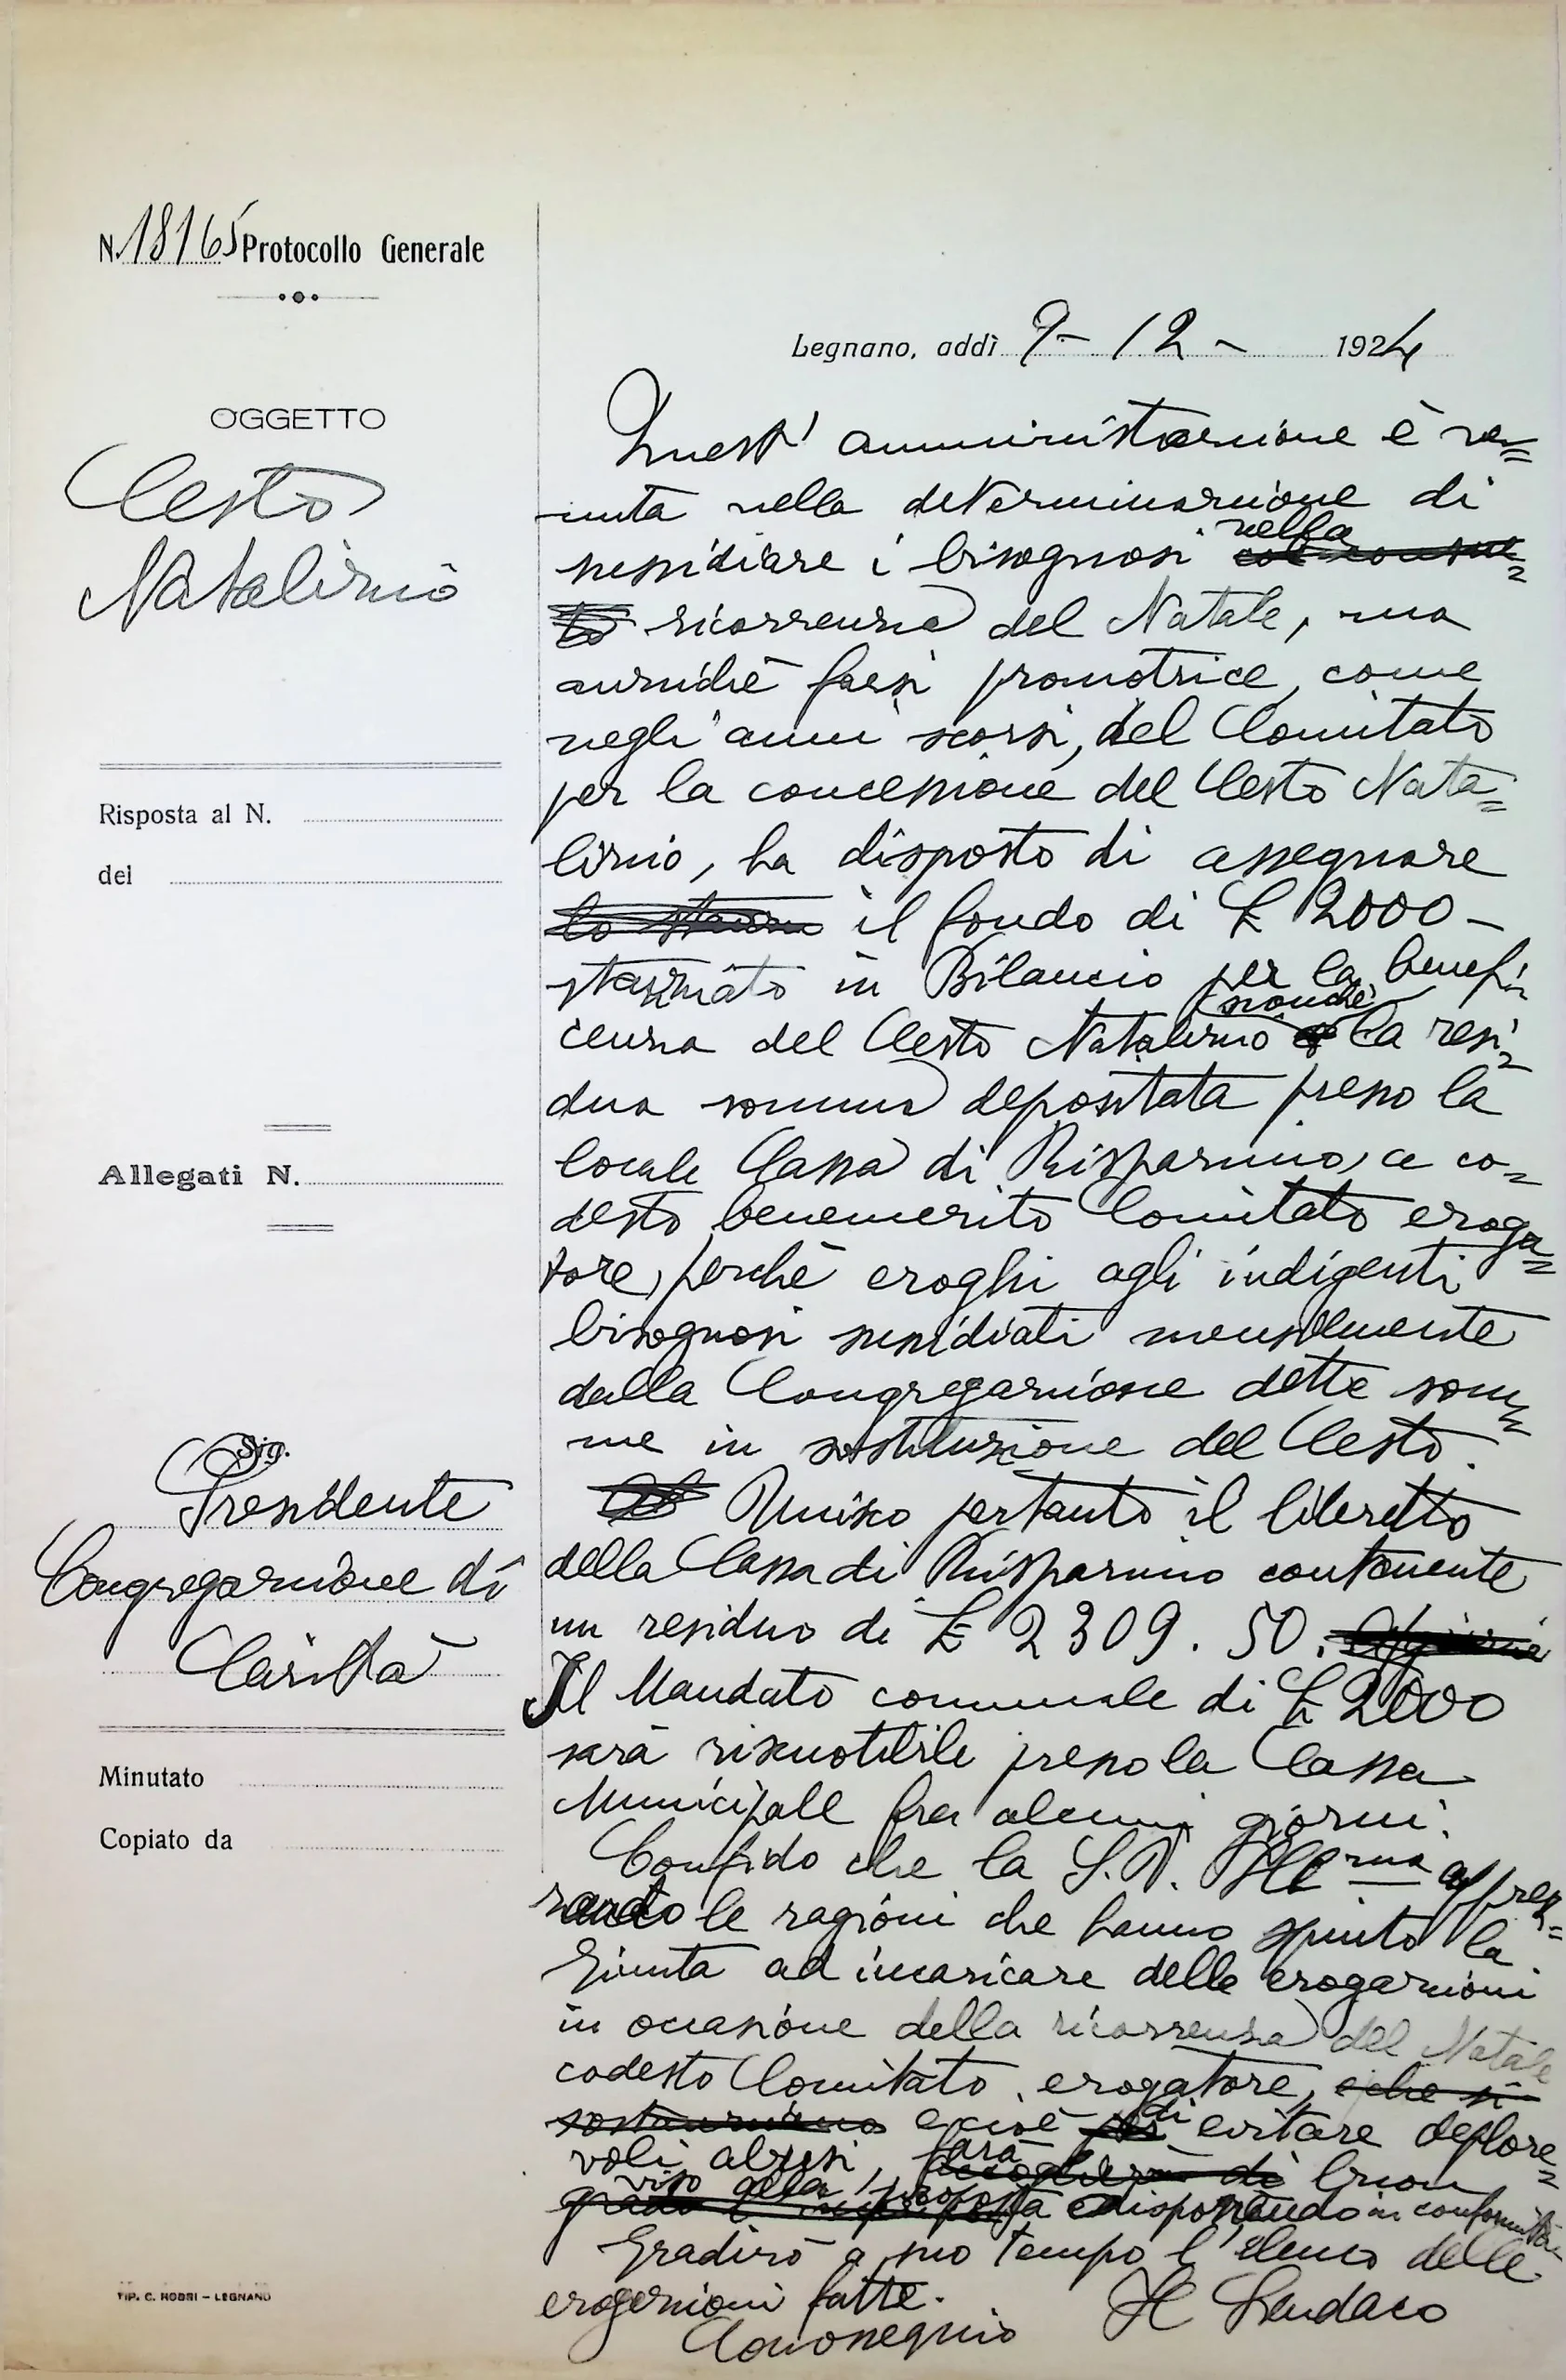 N. 18165 Protocollo Generale
Legnano, addì 9 - 12 - 1924
OGGETTO
Cesto
Natalizio
Risposta al N.
del
Allegati N.
Sig.
Presidente
Congregazione di
Carità
Minutato
Copiato da
TIP. C. ROSSI – LEGNANO
Quest' amministrazione è ve=
nuta nella determinazione di
sussidiare i bisognosi nella
ricorrenza del Natale, ma
anzichè farsi promotrice, come
negli anni scorsi, del Comitato
per la concessione del Cesto Nata=
lizio, ha disposto di assegnare
il fondo di £ 2000 -
stanziato in Bilancio per la benefi=
cenza del Cesto Natalizio nonchè la resi=
dua somma depositata presso la
locale Cassa di Risparmio, a co=
desto benemerito Comitato eroga=
tore, perchè eroghi agli indigenti
bisognosi sussidiati mensilmente
dalla Congregazione dette som=
me in sostituzione del Cesto.
Unisco pertanto il libretto
della Cassa di Risparmio contenente
un residuo di £ 2309.50.
Il Mandato comunale di £ 2000
sarà riscuotibile presso la Cassa
Municipale fra alcuni giorni.
Confido che la S.V. Ill.ma apprez=
zando le ragioni che hanno spinto la
Giunta ad incaricare delle erogazioni
in occasione della ricorrenza del Natale
codesto Comitato erogatore, che si
e cioè di evitare deplore=
voli abusi, farà buon
viso alla proposta disponendo in conformità.
Gradirò a suo tempo l'elenco delle
erogazioni fatte.
Con ossequio
Il Sindaco